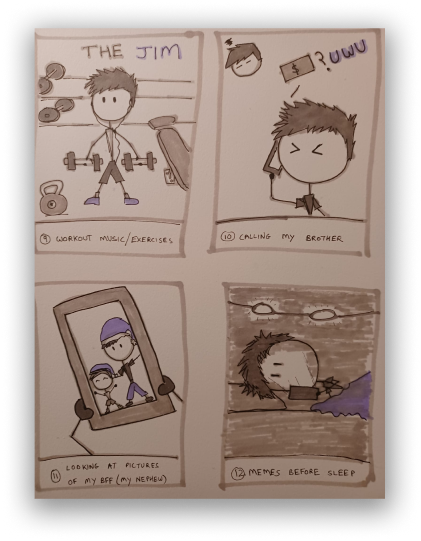 THE JIM
$ ? UWU
9 WORKOUT MUSIC/EXERCISES
10 CALLING MY BROTHER
11 LOOKING AT PICTURES
OF MY BFF (MY NEPHEW)
12 MEMES BEFORE SLEEP